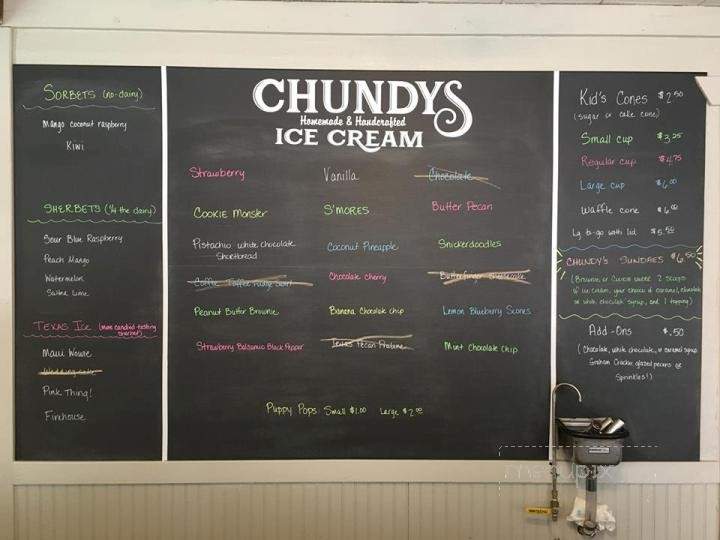 SORBETS (no-dairy)
Mango coconut raspberry
Kiwi
SHERBETS (¼ the dairy)
Sour Blue Raspberry
Peach Mango
Watermelon
Saline Lime
TEXAS ICE (more candied-tasting sherbet)
Maui Wowie
Wedding cake
Pink Thing!
Firehouse
CHUNDYS
Homemade & Handcrafted
ICE CREAM
Strawberry Vanilla Chocolate
Cookie Monster S'MORES Butter Pecan
Pistachio white chocolate Coconut Pineapple Snickerdoodles
Shortbread
Coffee Toffee Fudge Swirl Chocolate cherry Butterfinger Cheesecake
Peanut Butter Brownie Banana Chocolate chip Lemon Blueberry Scones
Strawberry Balsamic Black Pepper Texas Pecan Praline Mint Chocolate Chip
Puppy Pops: Small $1.00 Large $2.00
Kid's Cones $2.50
(sugar or cake cone)
Small cup $3.25
Regular cup $4.75
Large cup $6.00
Waffle cone $6.00
Lg to-go with lid $5.50
CHUNDY'S SUNDAES $6.50
(Brownie or Cookie 2 scoops
of ice cream, your choice of caramel, chocolate
or white chocolate syrup, and 1 topping)
Add-Ons $.50
(Chocolate, white chocolate, or caramel syrup
Graham Cracker, glazed pecans or
Sprinkles!)